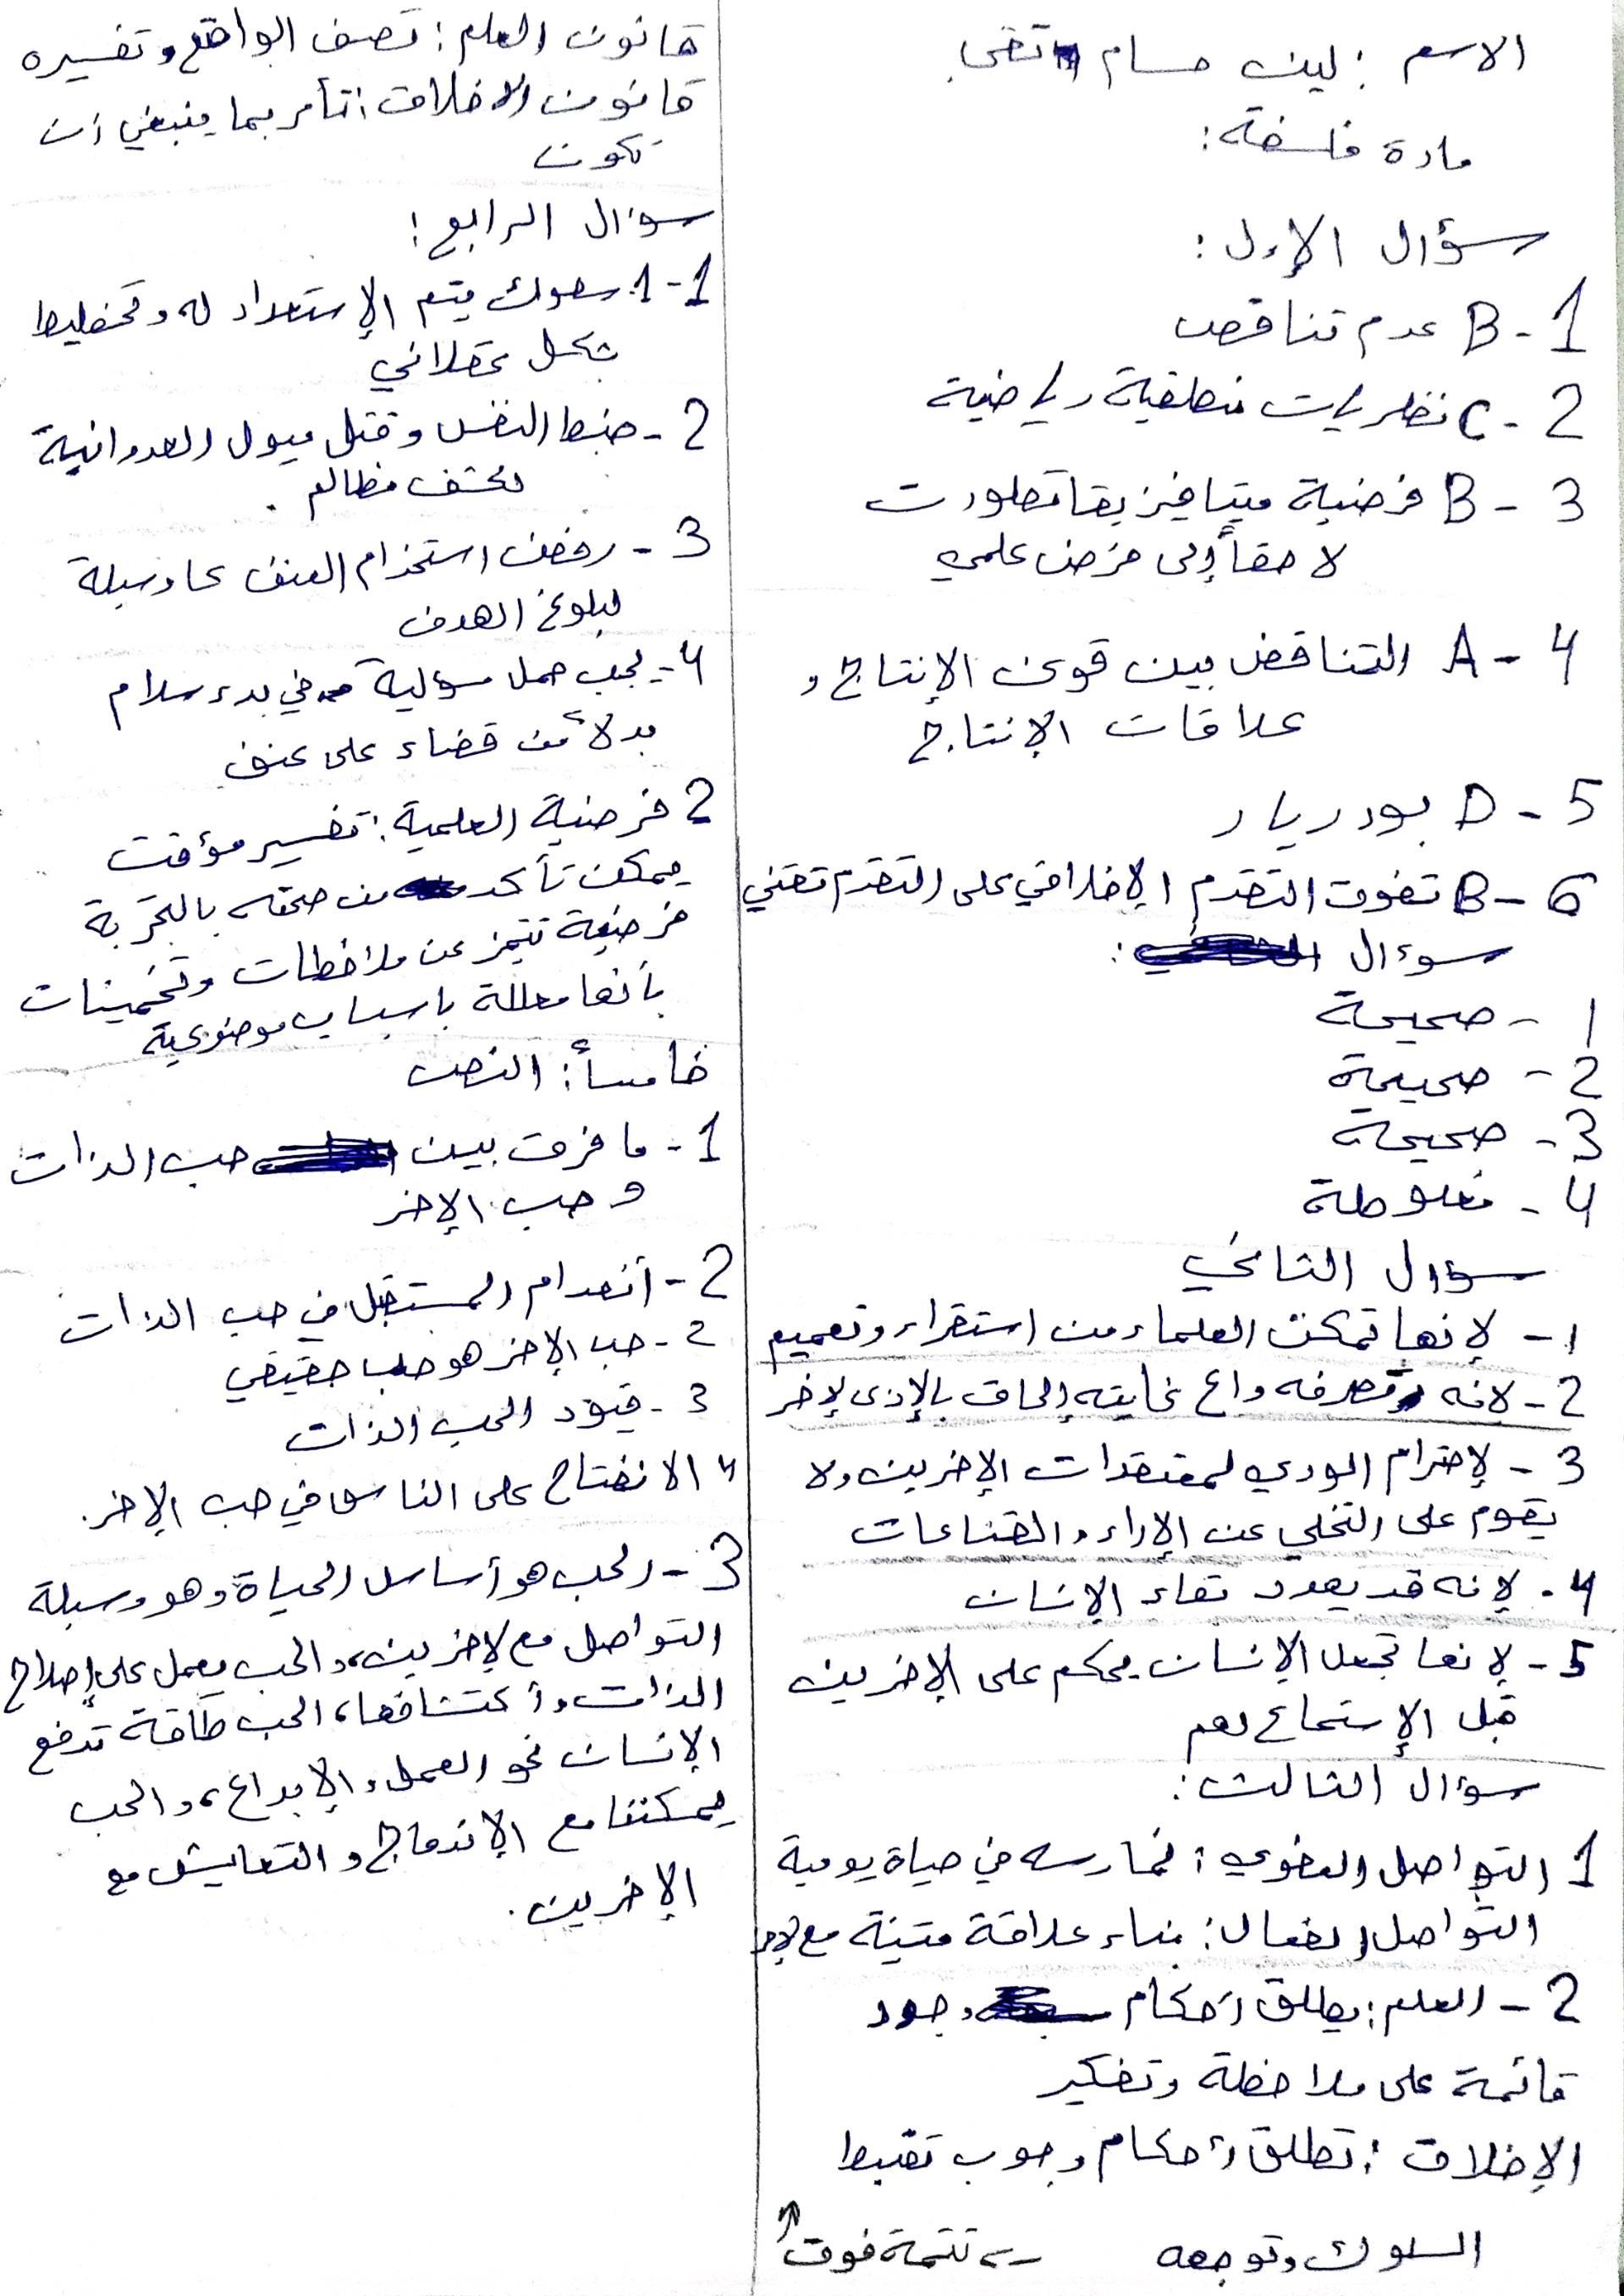 الاسم : ليث حسام تقي
مادة فلسفة :
سؤال الإول :
1 - B عدم تناقض
2 - C نظريات منطقية رياضية
3 - B فرضية ميتافيزيقا تطورت
لاحقاً إلى فرض علمي
4 - A التناقض بين قوى الإنتاج و
علاقات الإنتاج
5 - D بودريار
6 - B تفوق التقدم الإخلاقي على التقدم تقني
سوءال :
1 - صحيحة
2 - صحيحة
3 - صحيحة
4 - مغلوطة
سؤال الثاني
1 - لإنها تمكن العلماء من استقراء وتعميم
2 - لانه تصرفه واع غايته إلحاق بالإذى لإخر
3 - لإحترام الودي لمعتقدات الإخرين ولا
يقوم على التخلي عن الإراء والقناعات
4 - لإنه قد يهدد بقاء الإنسان
5 - لإنها تجعل الإنسان يحكم على الإخرين
قبل الإستماع لهم
سؤال الثالث :
1 التواصل العفوي : نمارسه في حياة يومية
التواصل الفعال : بناء علاقة متينة مع لإخر
2 - العلم : يطلق أحكام وجود
قائمة على ملاحظة وتفكير
الإخلاق : تطلق أحكام وجوب تضبط
السلوك وتوجهه تتمة فوق ↑
قانون العلم : تصف الواقع وتفسيره
قانون الاخلاق : تأمر بما ينبغي ان
تكون
سؤال الرابع :
1 - 1. سلوك يتم الإستعداد له وتخطيط
بشكل عقلاني
2 - ضبط النفس وقتل ميول العدوانية
وكشف مظالم .
3 - رفض استخدام العنف كاوسيلة
لبلوغ الهدف
4 - يجب حمل مسؤالية في بدء سلام
بدلاً من قضاء على عنف
2 فرضية العلمية : تفسير مؤقت
يمكن تأكد من صحته بالتجربة
فرضية تتميز عن ملاحظات وتخمينات
بأنها معللة باسباب موضوعية
خامساً : النص
1 - ما فرق بين حب الذات
و حب الإخر
2 - أنعدام المستقبل في حب الذات
2 - حب الإخر هو حب حقيقي
3 - قيود الحب الذات
4 الانفتاح على الناس في حب الإخر .
3 - الحب هو أساس الحياة وهو وسيلة
التواصل مع لإخرين، والحب يعمل على إصلاح
الذات وأكتشافها، الحب طاقة تدفع
الإنسان نحو العمل والإبداع، والحب
يمكننا مع الإندماج والتعايش مع
الإخرين .